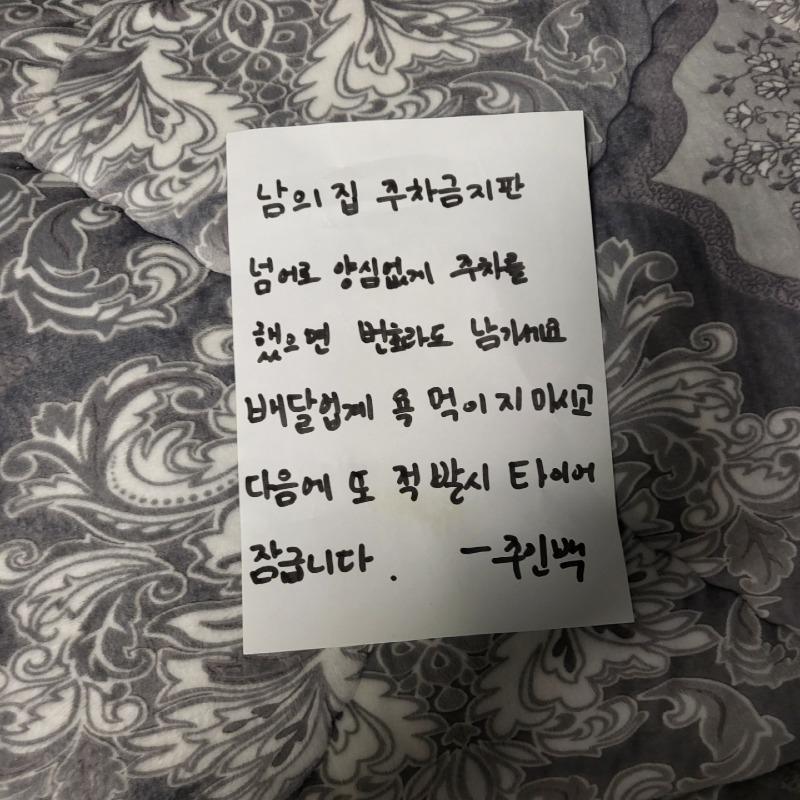 남의집 주차금지판
넘어로 양심없게 주차를
했으면 번호라도 남기세요
배달업계 욕 먹이지마시고
다음에 또 적발시 타이어
잠급니다. -주인백